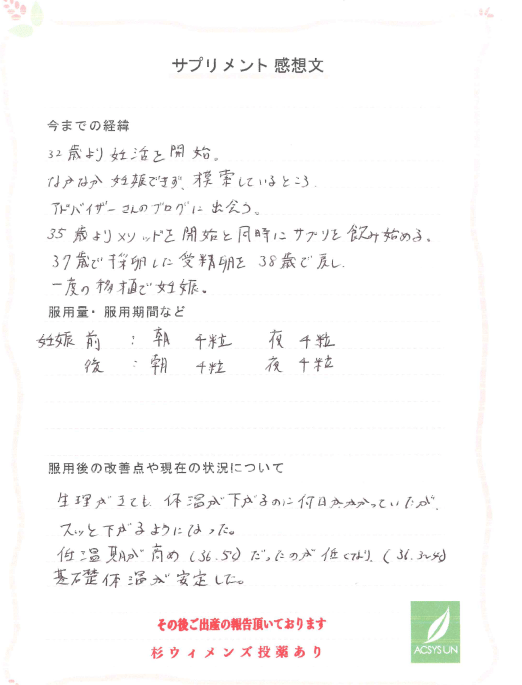 サプリメント 感想文
今までの経緯
32歳より妊活を開始。
なかなか妊娠できず、模索しているところ、
アドバイザーさんのブログに出会う。
35歳よりメソッドを開始と同時にサプリを飲み始める。
37歳で採卵した受精卵を38歳で戻し、
一度の移植で妊娠。
服用量・服用期間など
妊娠 前 : 朝 4粒 夜 4粒
後 : 朝 4粒 夜 4粒
服用後の改善点や現在の状況について
生理がきても、体温が下がるのに何日かかかっていたが、
スッと下がるようになった。
低温期が高め(36.5℃)だったのが低くなり、(36.3
基礎体温が安定した。
その後ご出産の報告頂いております
杉ウィメンズ投薬あり
ACSYSUN